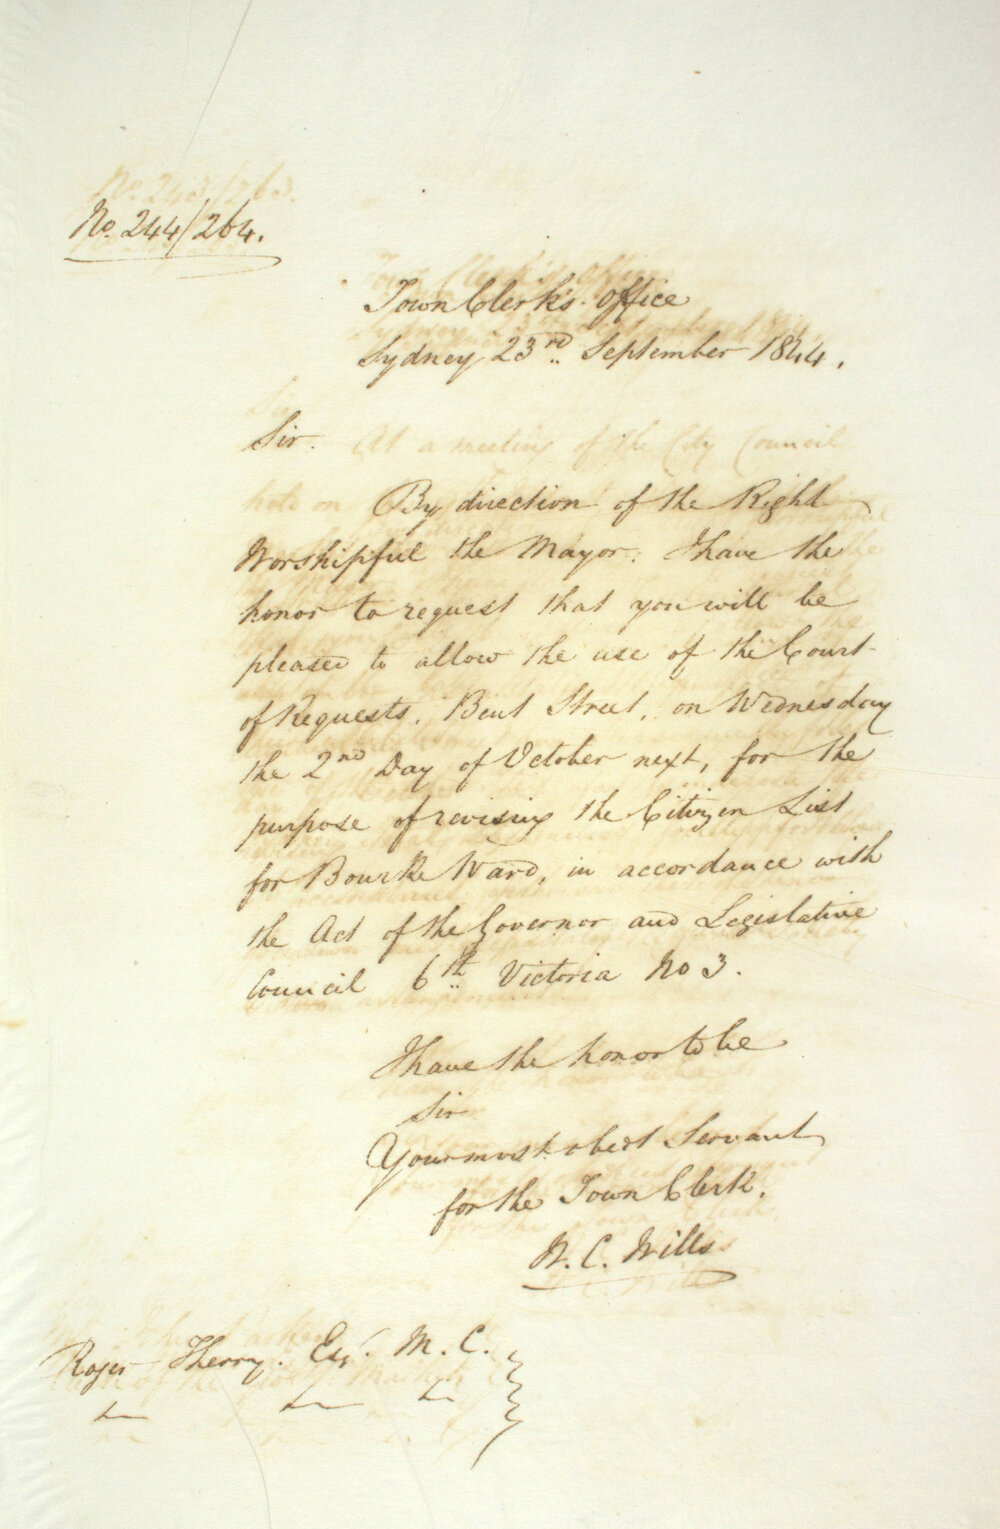 No. 244/264.
Town Clerk's Office
Sydney 23rd September 1844.
Sir.
By direction of the Right
Worshipful the Mayor. I have the
honor to request that you will be
pleased to allow the use of the Court
of Requests, Bent Street, on Wednesday
the 2nd Day of October next, for the
purpose of revising the Citizen List
for Bourke Ward, in accordance with
the Act of the Governor and Legislative
Council 6th Victoria No 3.
I have the honor to be
Sir
Your most obedt Servant
for the Town Clerk.
W. C. Wills
Roger Therry. Esqr. M. C.